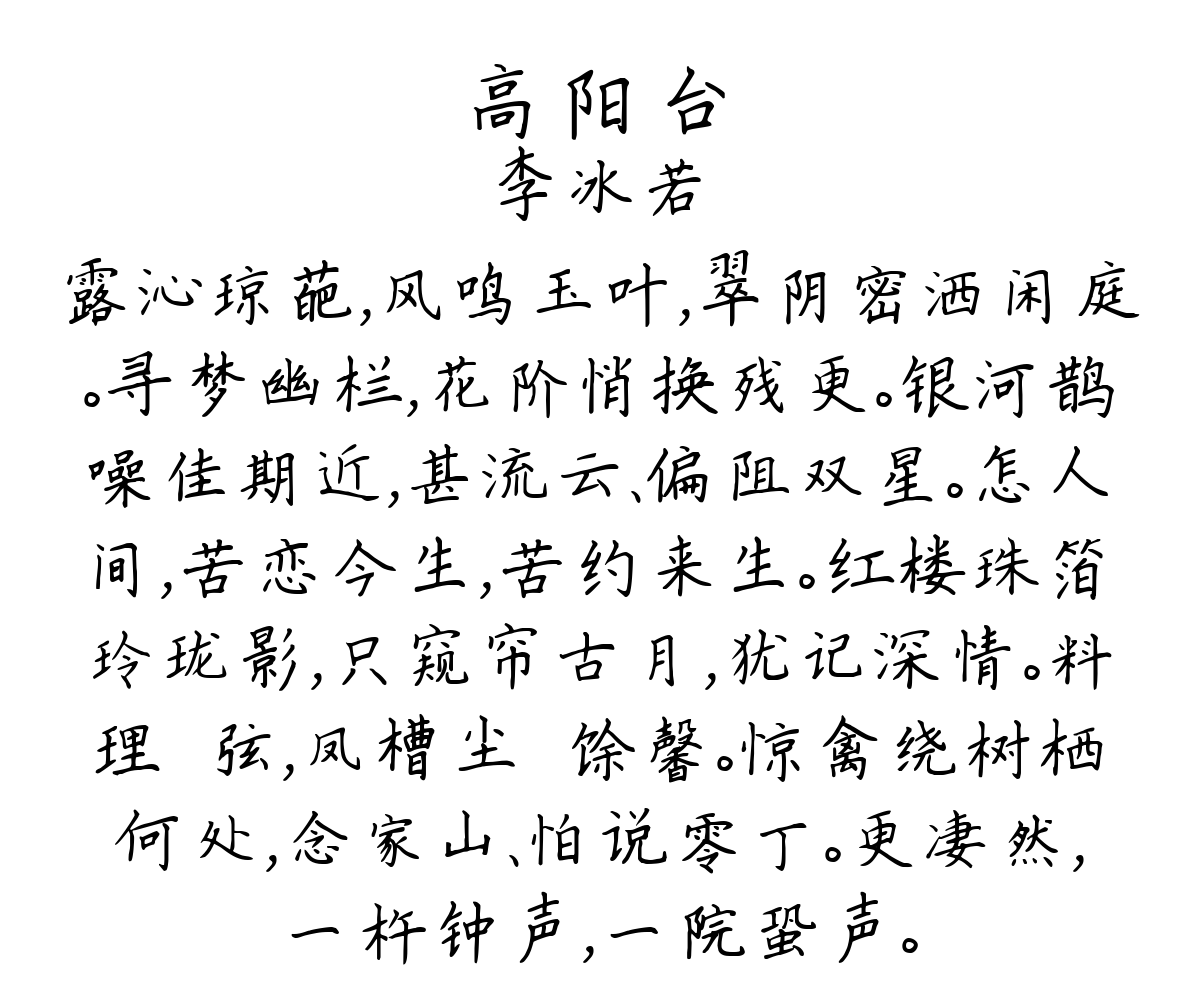 高阳台
李冰若
露沁琼葩,风鸣玉叶,翠阴密洒闲庭
。寻梦幽栏,花阶悄换残更。银河鹊
噪佳期近,甚流云、偏阻双星。怎人
间,苦恋今生,苦约来生。红楼珠箔
玲珑影,只窥帘古月,犹记深情。料
理 弦,凤槽尘 馀馨。惊禽绕树栖
何处,念家山、怕说零丁。更凄然,
一杵钟声,一院蛩声。